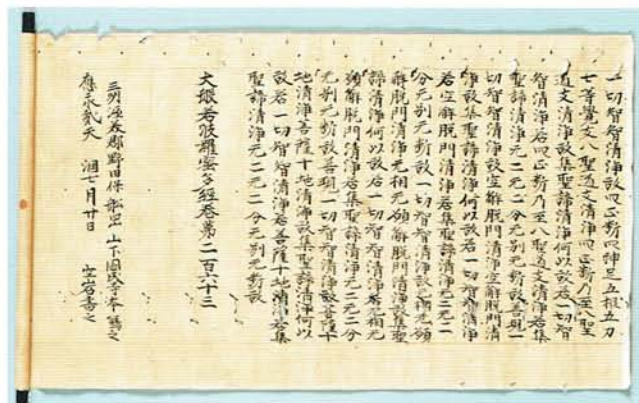 一切智智清淨故四正断四神足五根五力
七等覺支八聖道支清淨四正断乃至八聖
道支清淨故集聖諦清淨何以故若一切智
智清淨若四正断乃至八聖道支清淨若集
聖諦清淨无二无二分无別无断故善現一
切智智清淨故空解脱門清淨空解脱門清
淨故集聖諦清淨何以故若一切智智清淨
若空解脱門清淨若集聖諦清淨无二无二
分无別无断故一切智智清淨故无相无願
解脱門清淨无相无願解脱門清淨故集聖
諦清淨何以故若一切智智清淨若无相无
願解脱門清淨若集聖諦清淨无二无二分
无別无断故善現一切智智清淨故菩薩十
地清淨菩薩十地清淨故集聖諦清淨何以
故若一切智智清淨若菩薩十地清淨若集
聖諦清淨无二无二分无別无断故
大般若波羅蜜多經卷第二百六十三
三州渥美郡野田保 山下
應永貳天 潤七月廿日 空岩書之